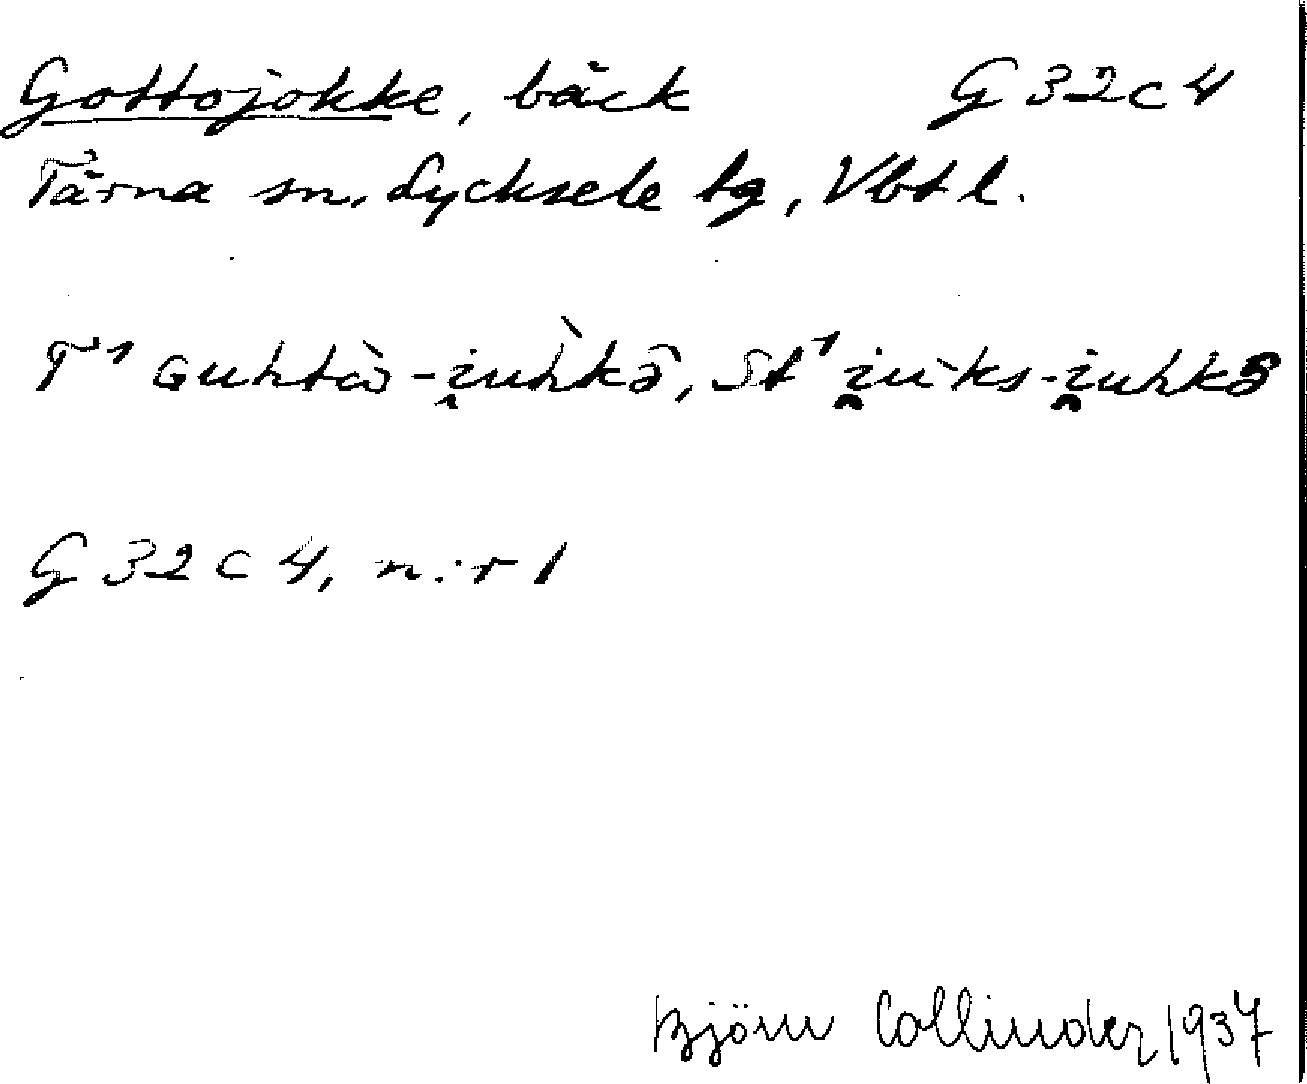 Gottojokke, bäck G 32 c 4
Tärna sn, Lycksele lg, Vbtl.
T¹ ɢuhtà̀ -i̯uh̀kə̄, St¹ i̯ù·ks-i̯uhkɜ
G 32 c 4, n:r 1
Björn Collinder 1937